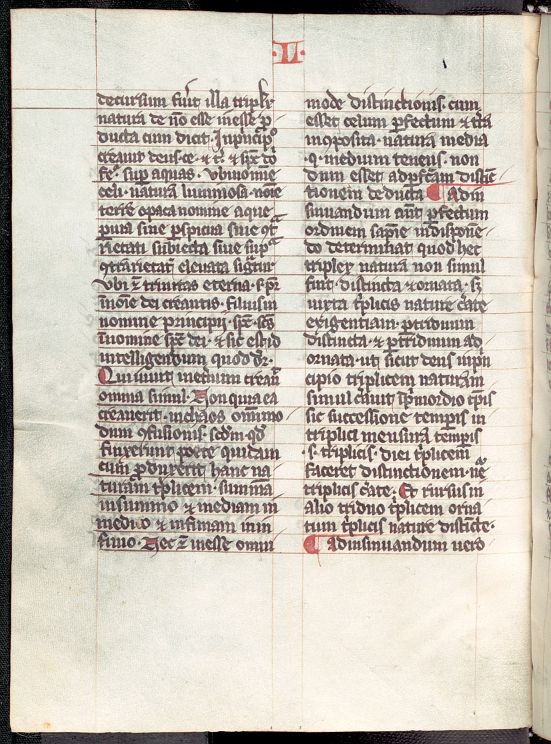 ·II·
decursum fuit illa triplex
natura de nō esse in esse p
ducta cum dicit. In pͥncipͦ
creauit deus ce. & t̄. & sp̄c dō
fe. sup aquas. vbi nomīe
celi. natura luminosa. noīe
terre opaca nomine aque
pura siue pspicua siue
rietati subiecta siue sup
elevata
vbi ē trinitas eterna.
noīe dei creantis. filius in
nomine principij. sp̄c
nomine sp̄c dei. & sic est id
intelligendum quod dr̄.
Qui viuit ineternum creauī
omnia simul. Non quia ea
creauerit. in chaos omnimo
dum ꝯfusionis. scdm qd
finxerunt poete quidam
cum produxerit hanc na
turam tͥplicem. summam
in summo & mediam in
medio & infimam in in
fimo. Nec ē in esse omni
mode distinctionis. cum
esset celum pfectum & tra
inꝯposita. natura media
·q· medium tenens. non
dum esset ad pfc̄am distic̄
tionem deducta ¶ Ad in
sinuandum aut̄ pfectum
ordinem sapīe in disponē
do determinat quod hec
triplex natura non simul
fuit distincta & ornata. sȝ
iuxta tͥplicis nature
exigentiam. p triduum
distincta. & p triduum ad
ornata. ut sicut deus in pͥn
cipio triplicem naturam
simul cauit ī pͥmordio tp̄is
sic successione temporis in
triplici mensura temporis
·s· triplicis. diei tͥplicem
faceret distinctionem
triplicis Et rursus in
alio triduo tͥplicem orna
tum tͥplicis nature disticte.
¶ Ad insinuandum vero